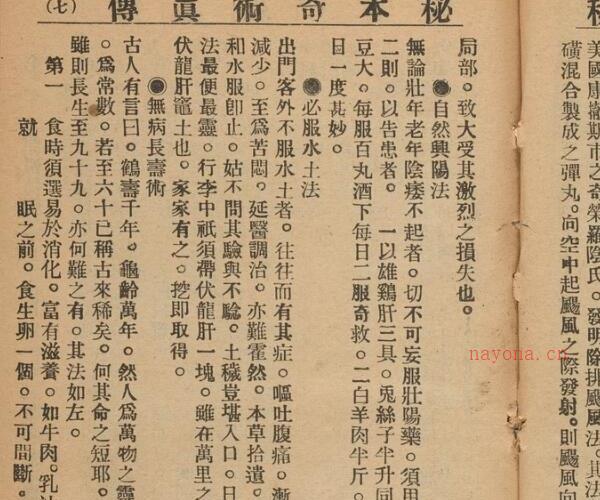 秘本奇術真傳
(七)
局部。致大受其激烈之損失也。
●自然興陽法
無論壯年老年陰痿不起者。切不可妄服壯陽藥。須用
二則。以告患者。　一以雄鷄肝三具。兎絲子半升同
豆大。每服百丸酒下每日二服奇救。二白羊肉半斤。
日一度甚妙。
●必服水土法
出門客外不服水土者。往往而有其症。嘔吐腹痛。漸
減少。至爲苦悶。延醫調治。亦難霍然。本草拾遺。
和水服卽止。姑不問其驗與不騐。土穢豈堪入口。日
法最便最靈。行李中祇須帶伏龍肝一塊。雖在萬里之
伏龍肝竈土也。家家有之。挖即取得。
●無病長壽術
古人有言曰。鶴壽千年。龜齡萬年。然人爲萬物之靈
。爲常數。若至六十已稱古來稀矣。何其命之短耶。
雖則長生至九十九。亦何難之有。其法如左。
第一　食時須選易於消化。富有滋養。如牛肉。乳
就　眠之前。食生卵一個。不可間斷。
美國康撒斯市之奇榮羅陰氏。發明除排颶風法。其法
磺混合製成之彈丸。向空中起颶風之際發射。則颶風向
nayona.cn